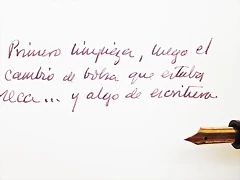 Primero limpieza, luego el
cambio de bolsa que estaba
seca... y algo de escritura.